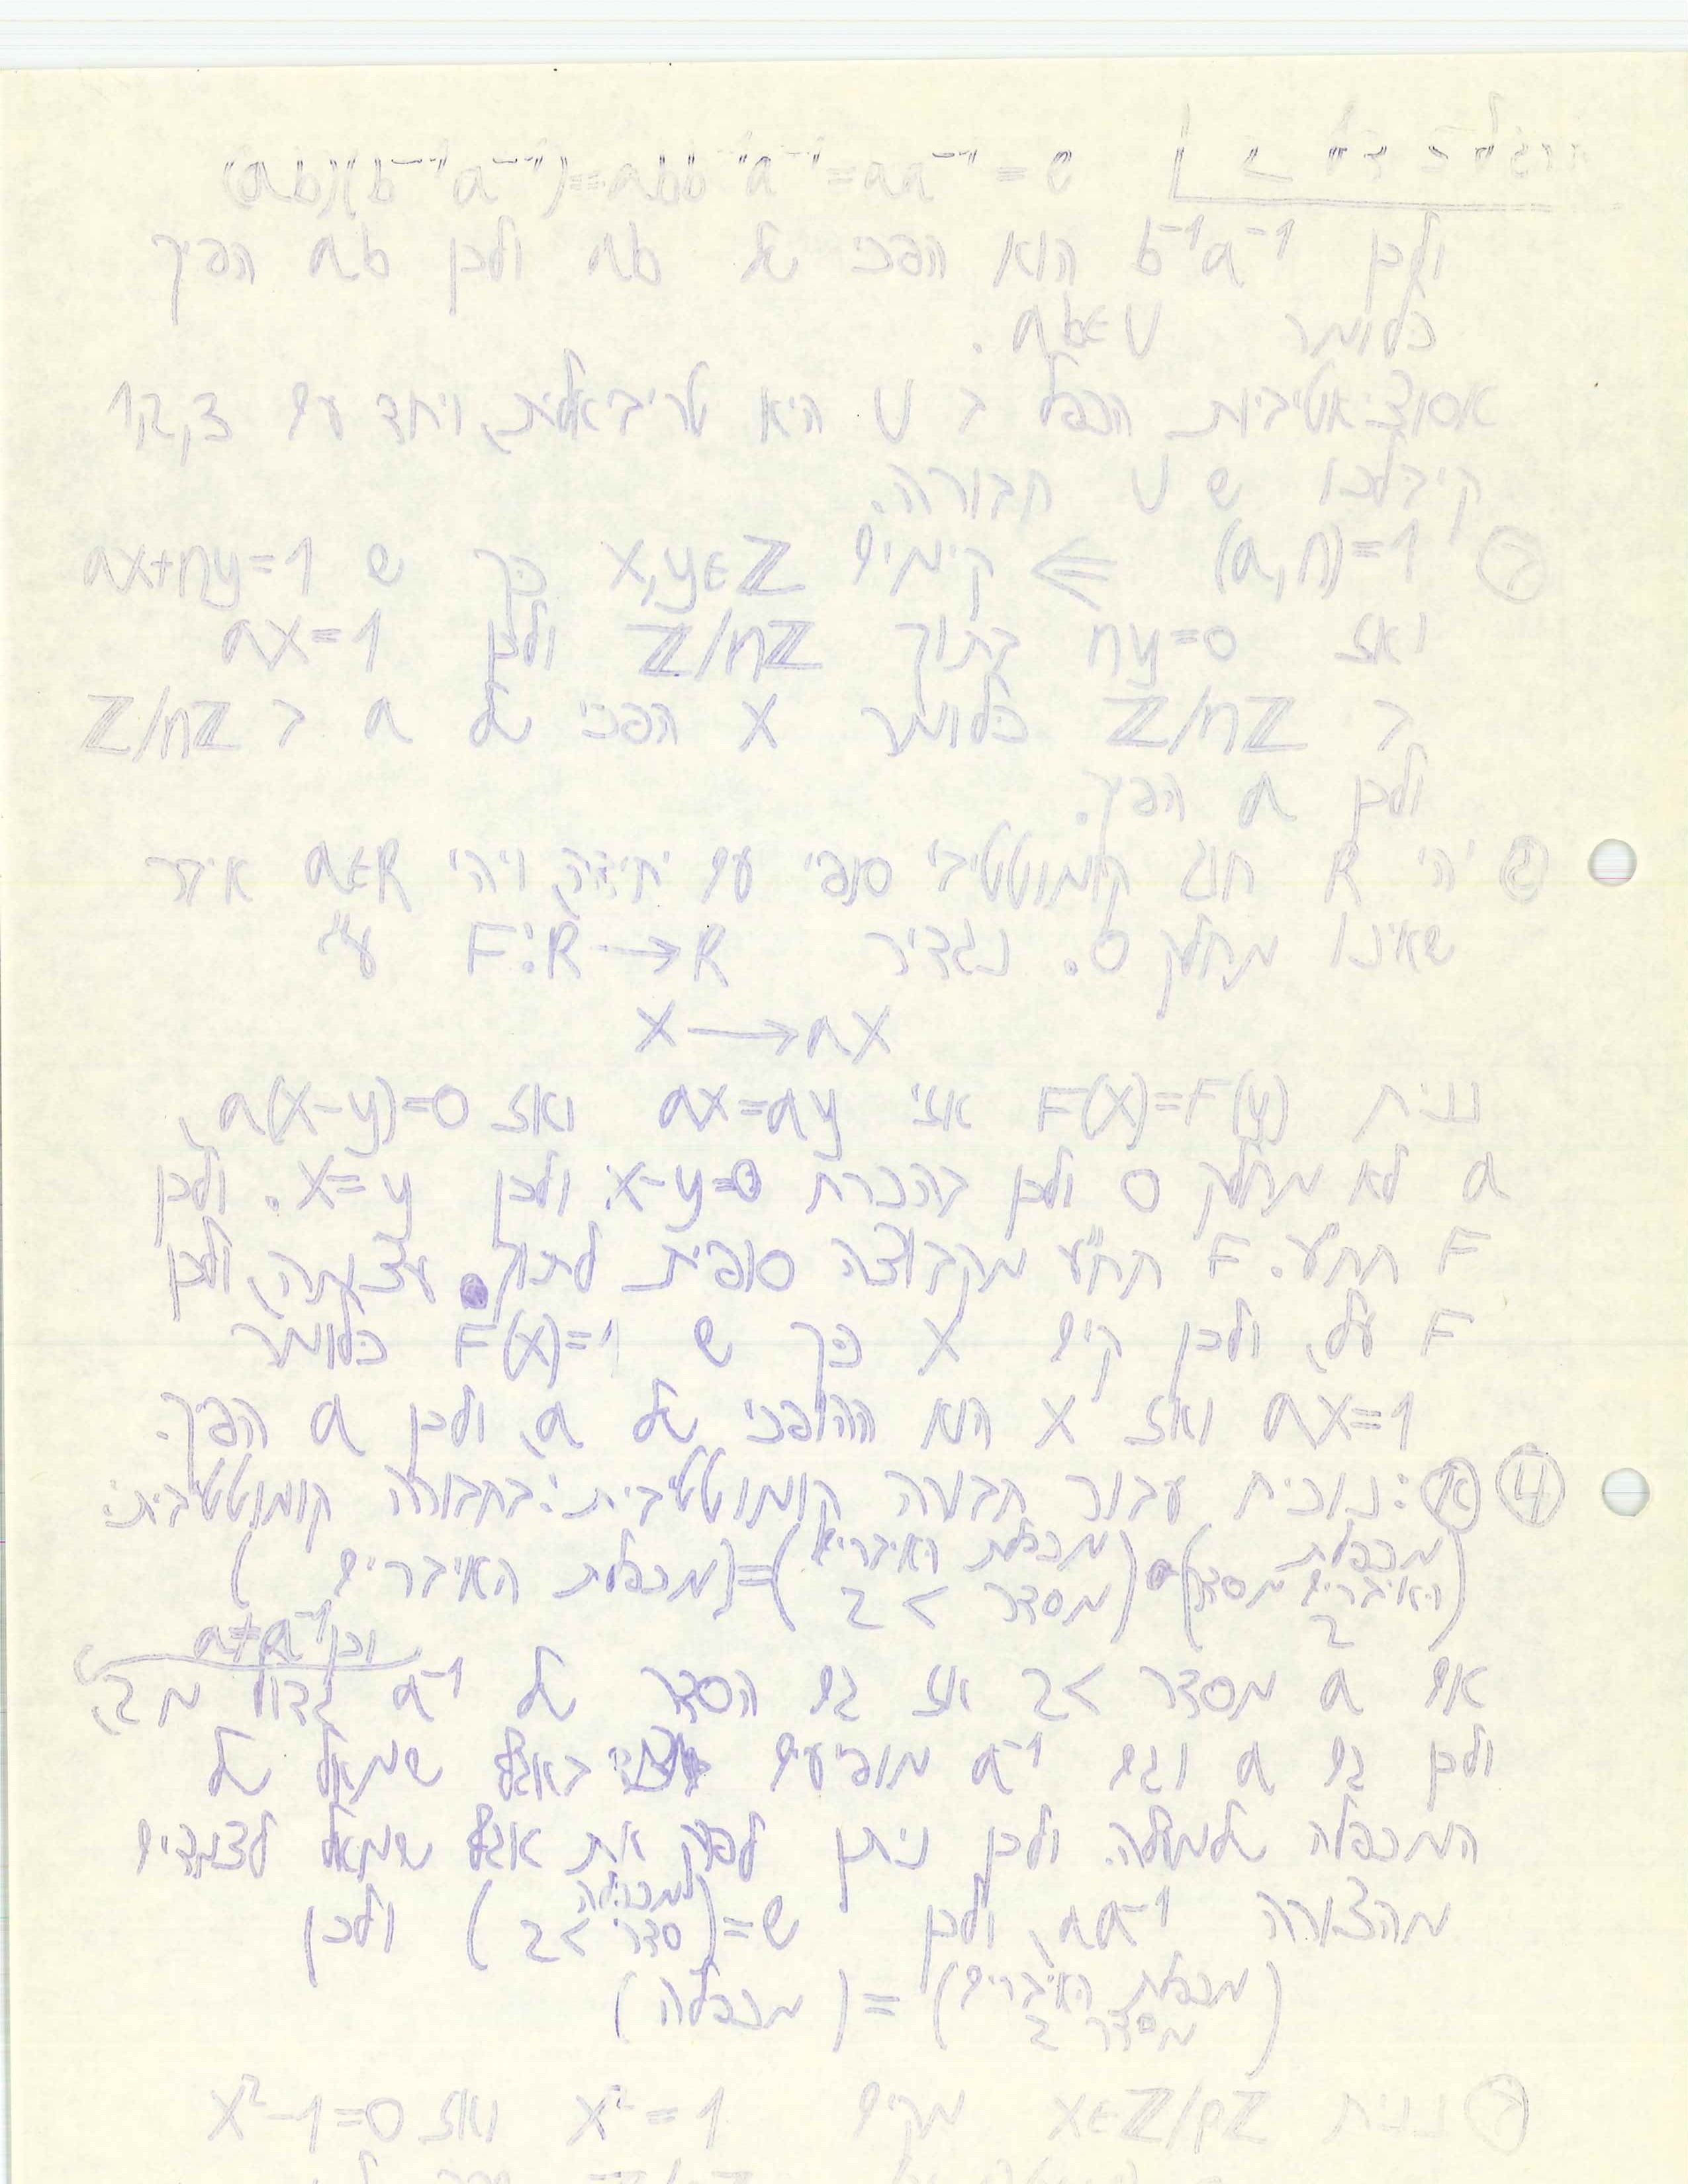 (ab)(b⁻¹a⁻¹)=abb⁻¹a⁻¹=aa⁻¹=e
ולכן b⁻¹a⁻¹ הוא הפכי של ab ולכן ab הפיך
כלומר ab∈U.
אסוציאטיביות הכפל ב U היא טריביאלית, ויחד עם 1,2,3
קיבלנו ש U חבורה.
(a,n)=1 ⇐ קיימים x,y∈ℤ כך ש ax+ny=1
ואז ny=0 בתוך ℤ/nℤ ולכן ax=1
ב ℤ/nℤ כלומר x הפכי של a ב ℤ/nℤ
ולכן a הפיך.
יהי R חוג קומוטטיבי סופי עם יחידה, ויהי a∈R איבר
שאינו מחלק 0. נגדיר F:R→R ע"י
x→ax
נניח F(x)=F(y) אזי ax=ay ואז a(x-y)=0,
a לא מחלק 0 ולכן בהכרח x-y=0 ולכן x=y. ולכן
F חח"ע. F חח"ע מקבוצה סופית לתוך עצמה, ולכן
F על, ולכן קיים x כך ש F(x)=1 כלומר
ax=1 ואז x הוא ההופכי של a, ולכן a הפיך.
④ א: נוכיח עבור חבורה קומוטטיבית: בחבורה קומוטטיבית:
(מכפלת האיברים מסדר 2)•(מכפלת האיברים מסדר > 2)=(מכפלת האיברים)
אם a מסדר >2 אז גם הסדר של a⁻¹ גדול מ 2, וכן a≠a⁻¹
ולכן גם a וגם a⁻¹ מופיעים באגף שמאל של
המכפלה שלמעלה. ולכן ניתן לפרק את אגף שמאל לצמדים
מהצורה aa⁻¹, ולכן ש=(סדר >2) ולכן
(מכפלת האיברים מסדר 2) = (מכפלה)
נניח x∈ℤ/pℤ מקיים x²=1 ואז x²-1=0